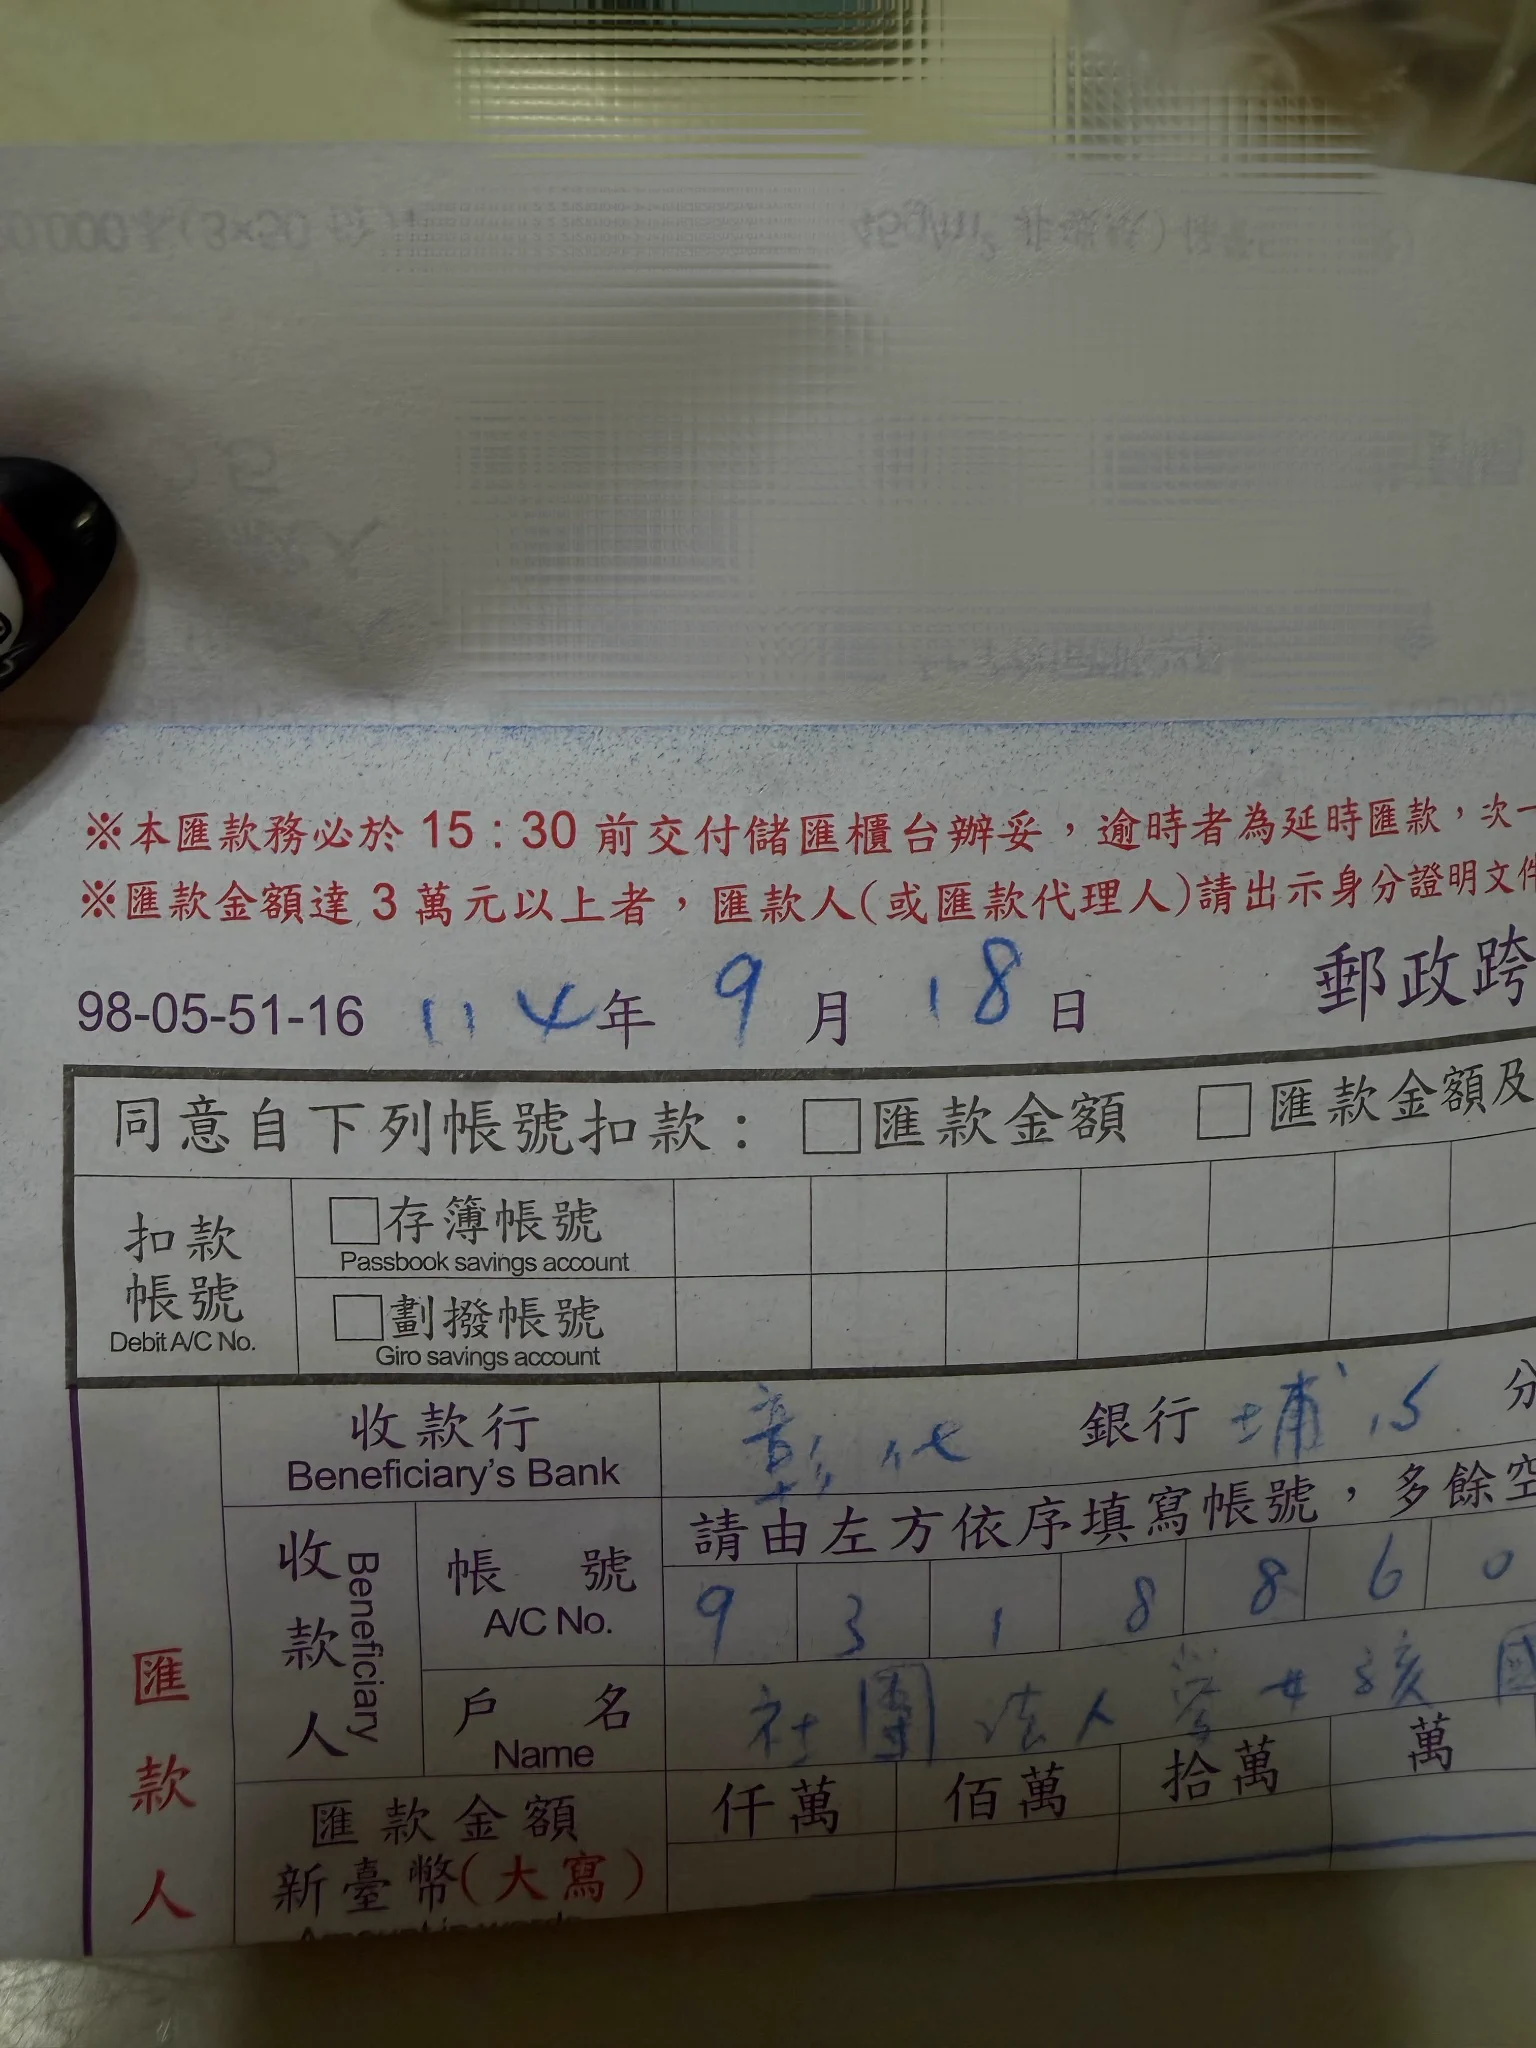 ※本匯款務必於 15：30 前交付儲匯櫃台辦妥，逾時者為延時匯款，次一
※匯款金額達 3 萬元以上者，匯款人(或匯款代理人)請出示身分證明文件
98-05-51-16 114年 9月 18日 郵政跨
同意自下列帳號扣款： □匯款金額 □匯款金額及
扣款帳號 Debit A/C No.
□存簿帳號
Passbook savings account
□劃撥帳號
Giro savings account
收款行 彰化 銀行 埔 分
Beneficiary's Bank
請由左方依序填寫帳號，多餘空
收款人 Beneficiary
帳號 9 3 1 8 8 6 0
A/C No.
戶名 社團法人 女孩 國
Name
匯款人
匯款金額 仟萬 佰萬 拾萬 萬
新臺幣(大寫)